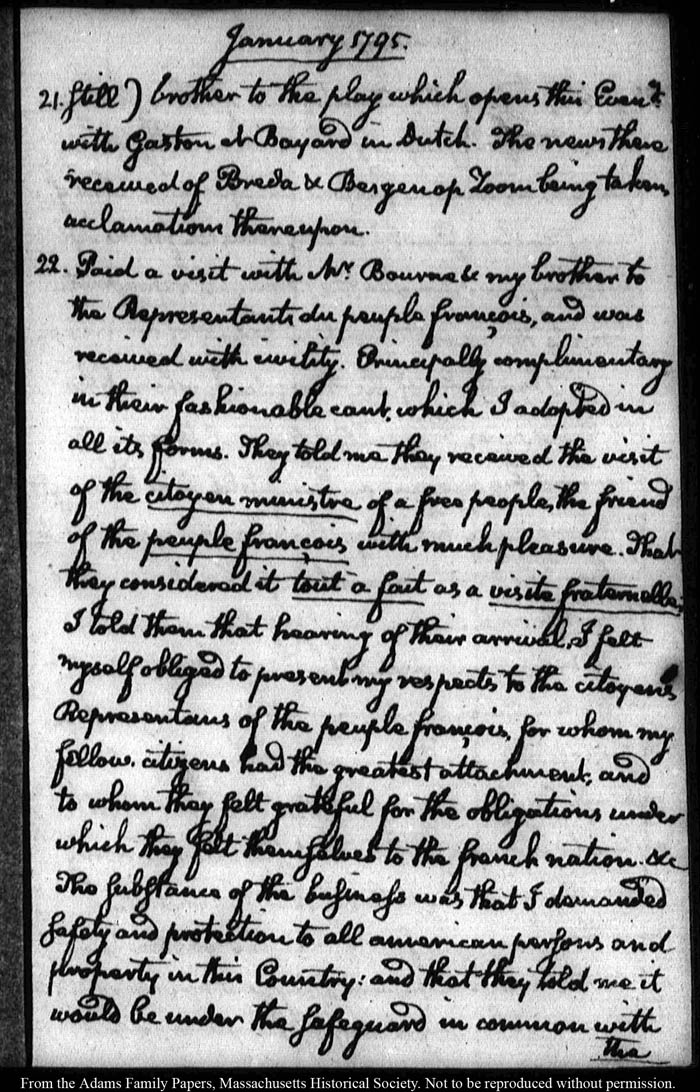 January 1795.
21. Still) brother to the play which opens this Eveng.
with Gaston et Bayard in Dutch. The news there
received of Breda & Bergen op Zoom being taken,
acclamations thereupon.
22. Paid a visit with Mr. Bourne & my brother to
the Representants du peuple françois, and was
received with civility. Principally complimentary
in their fashionable cant, which I adopted in
all its forms. They told me they received the visit
of the citoyen ministre of a free people, the friend
of the peuple françois, with much pleasure. That
they considered it tout a fait as a visite fraternelle;
I told them that hearing of their arrival, I felt
myself obliged to present my respects to the citoyens
Representans of the peuple françois, for whom my
fellow-citizens had the greatest attachment; and
to whom they felt grateful for the obligations under
which they felt themselves to the french nation. &c
The substance of the business was that I demanded
safety and protection to all american persons and
property in this Country: and that they told me it
would be under the safeguard in common with
the
From the Adams Family Papers, Massachusetts Historical Society. Not to be reproduced without permission.